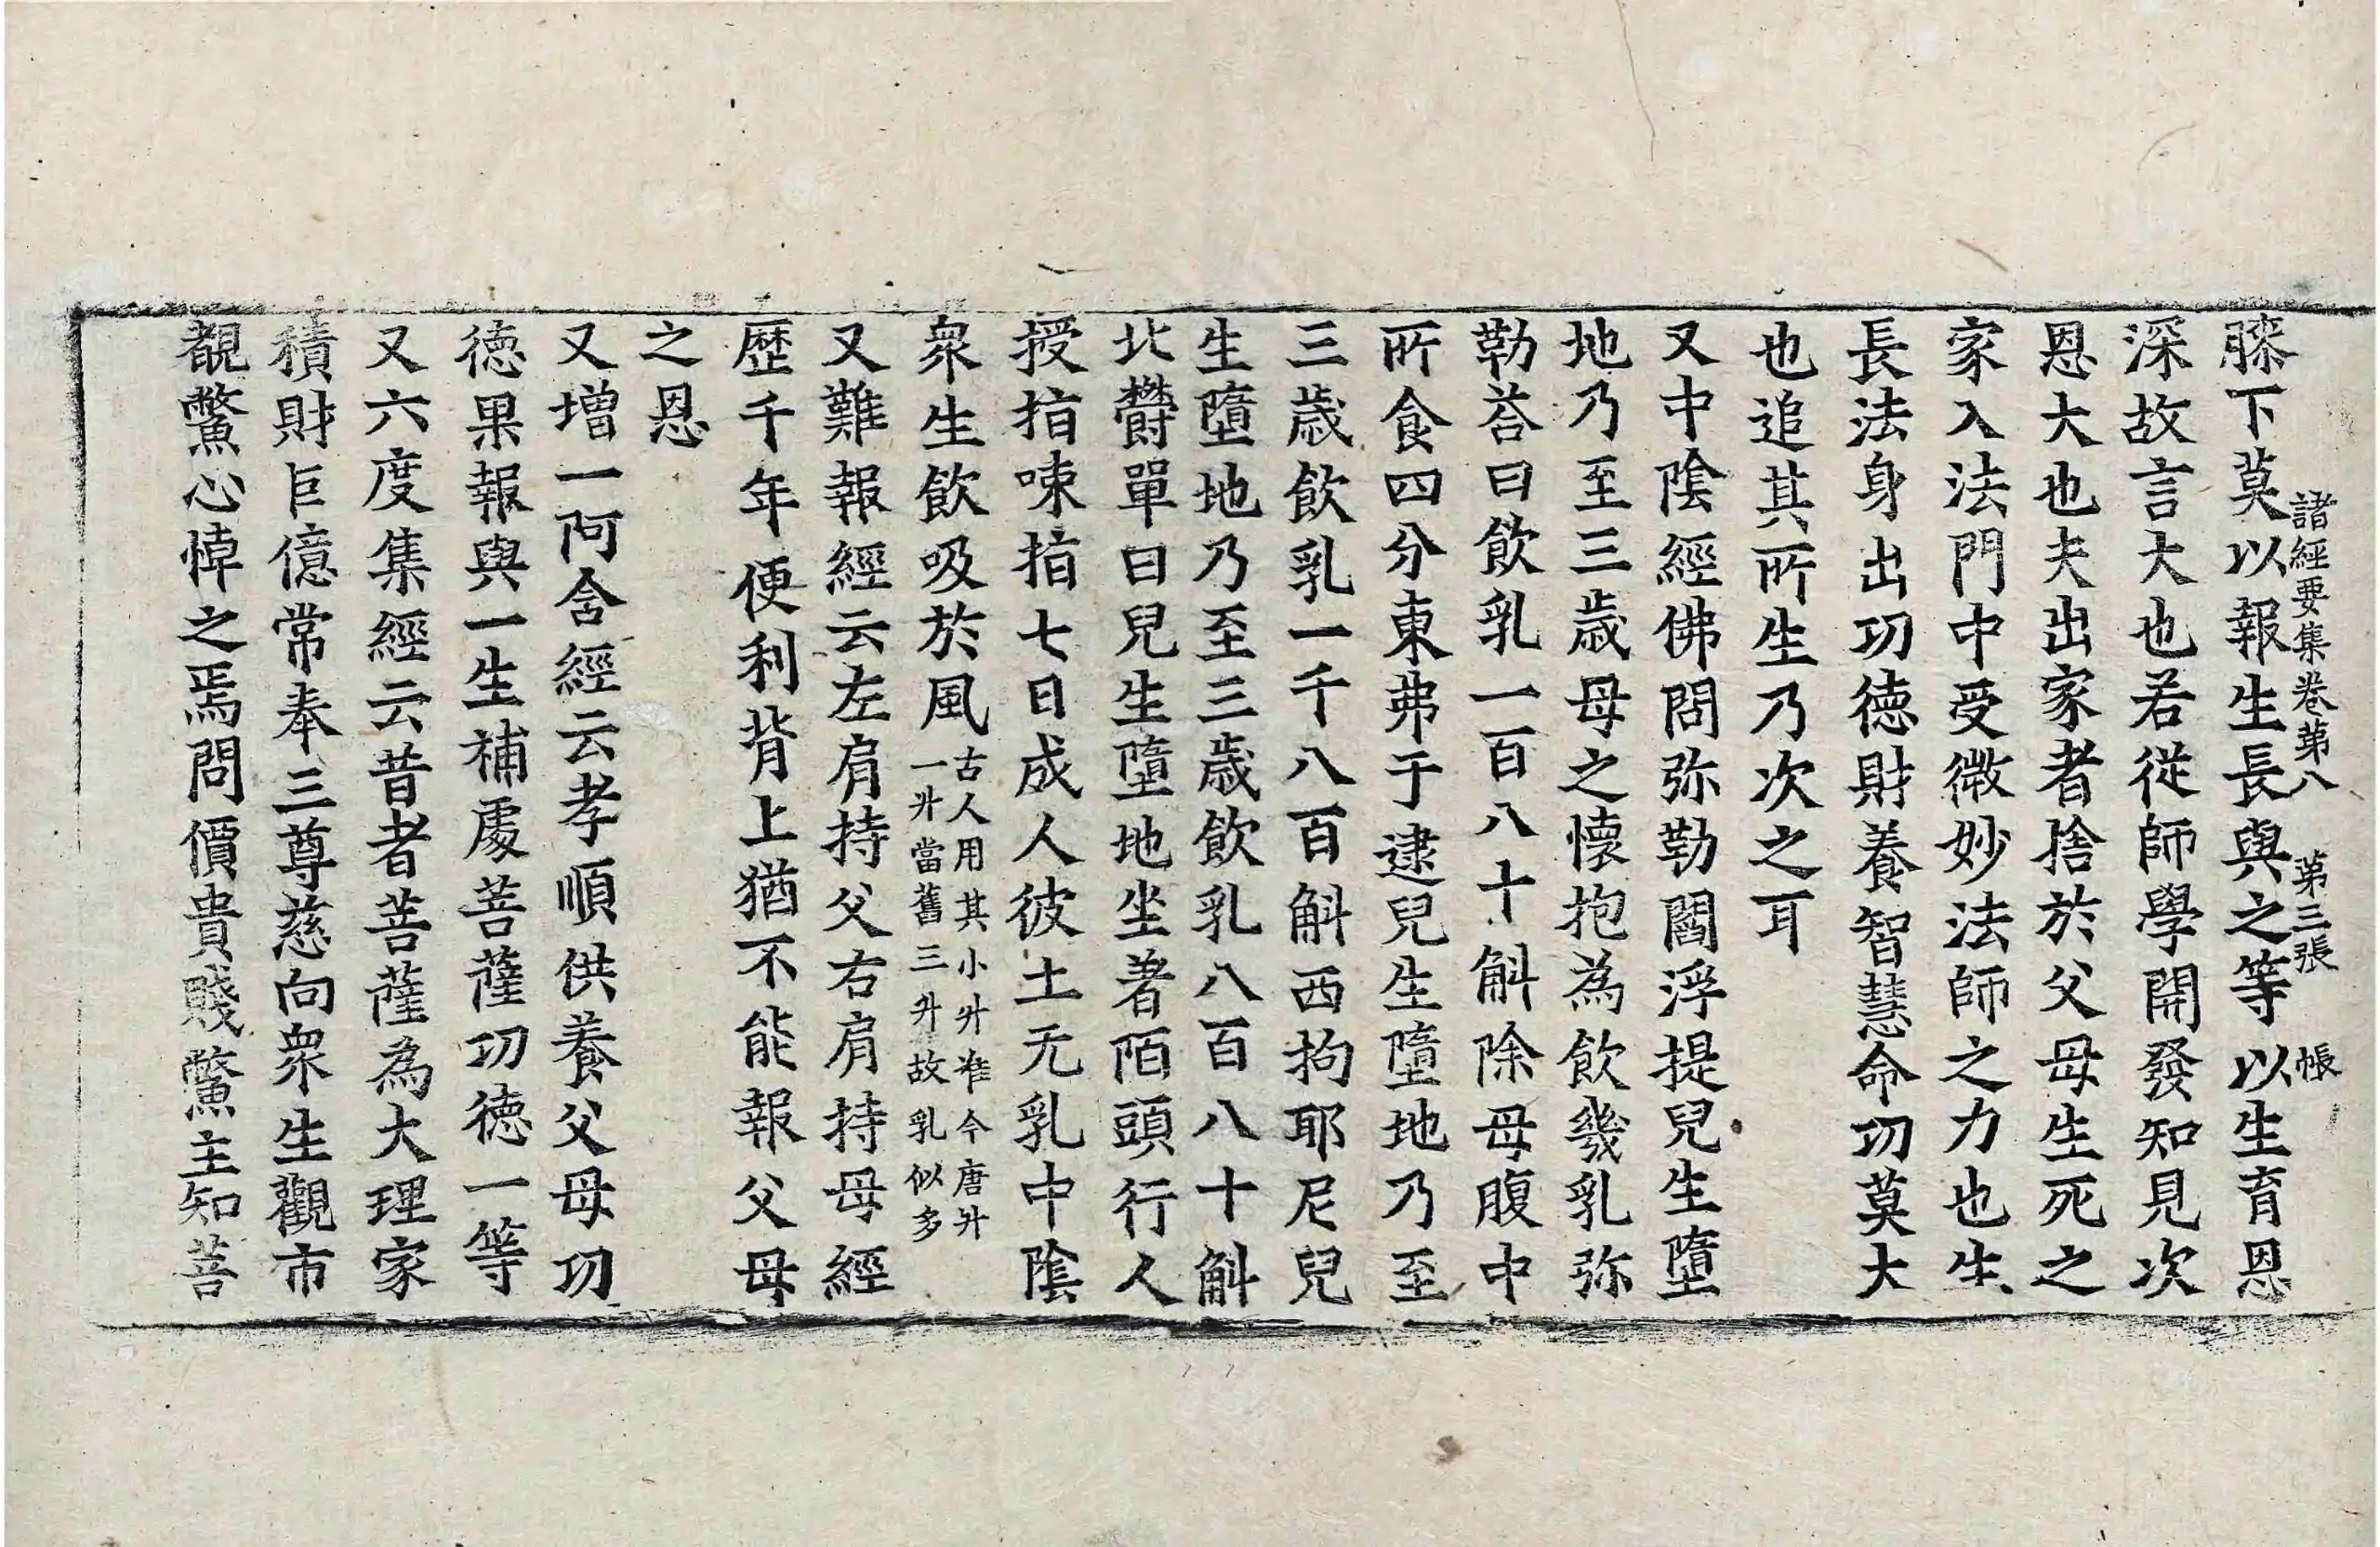 諸經要集卷第八　第三張　帳
膝下莫以報生長與之等以生育恩
深故言大也若從師學開發知見次
恩大也夫出家者捨於父母生死之
家入法門中受微妙法師之力也生
長法身出功德財養智慧命功莫大
也追其所生乃次之耳
又中陰經佛問弥勒閻浮提兒生墮
地乃至三歲母之懷抱為飲幾乳弥
勒荅曰飲乳一百八十斛除母腹中
所食四分東弗于逮兒生墮地乃至
三歲飲乳一千八百斛西拘耶尼兒
生墮地乃至三歲飲乳八百八十斛
北欝單曰兒生墮地坐著陌頭行人
授指㖩指七日成人彼土无乳中陰
衆生飲吸於風古人用其小升准今唐升
一升當舊三升故乳似多
又難報經云左肩持父右肩持母經
歷千年便利背上猶不能報父母
之恩
又增一阿含經云孝順供養父母功
德果報與一生補處菩薩功德一等
又六度集經云昔者菩薩為大理家
積財巨億常奉三尊慈向衆生觀市
覩鱉心悼之焉問價貴賤鱉主知菩